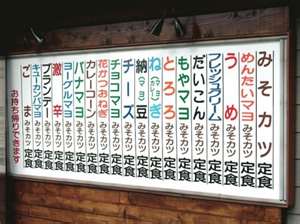 みそカツ定食
めんたいマヨみそカツ定食
うめみそカツ定食
フレッシュクリームみそカツ定食
だいこんみそカツ定食
もやマヨみそカツ定食
とろろみそカツ定食
ねぎみそカツ定食
納豆みそカツ定食
チーズみそカツ定食
チョコマヨみそカツ定食
カレーコーンみそカツ定食
花かつおねぎみそカツ定食
バナマヨみそカツ定食
ヨーグルマヨみそカツ定食
激辛みそカツ定食
ブランデーみそカツ定食
キューカンバマヨみそカツ定食
ごまみそカツ定食
お持ち帰りできます